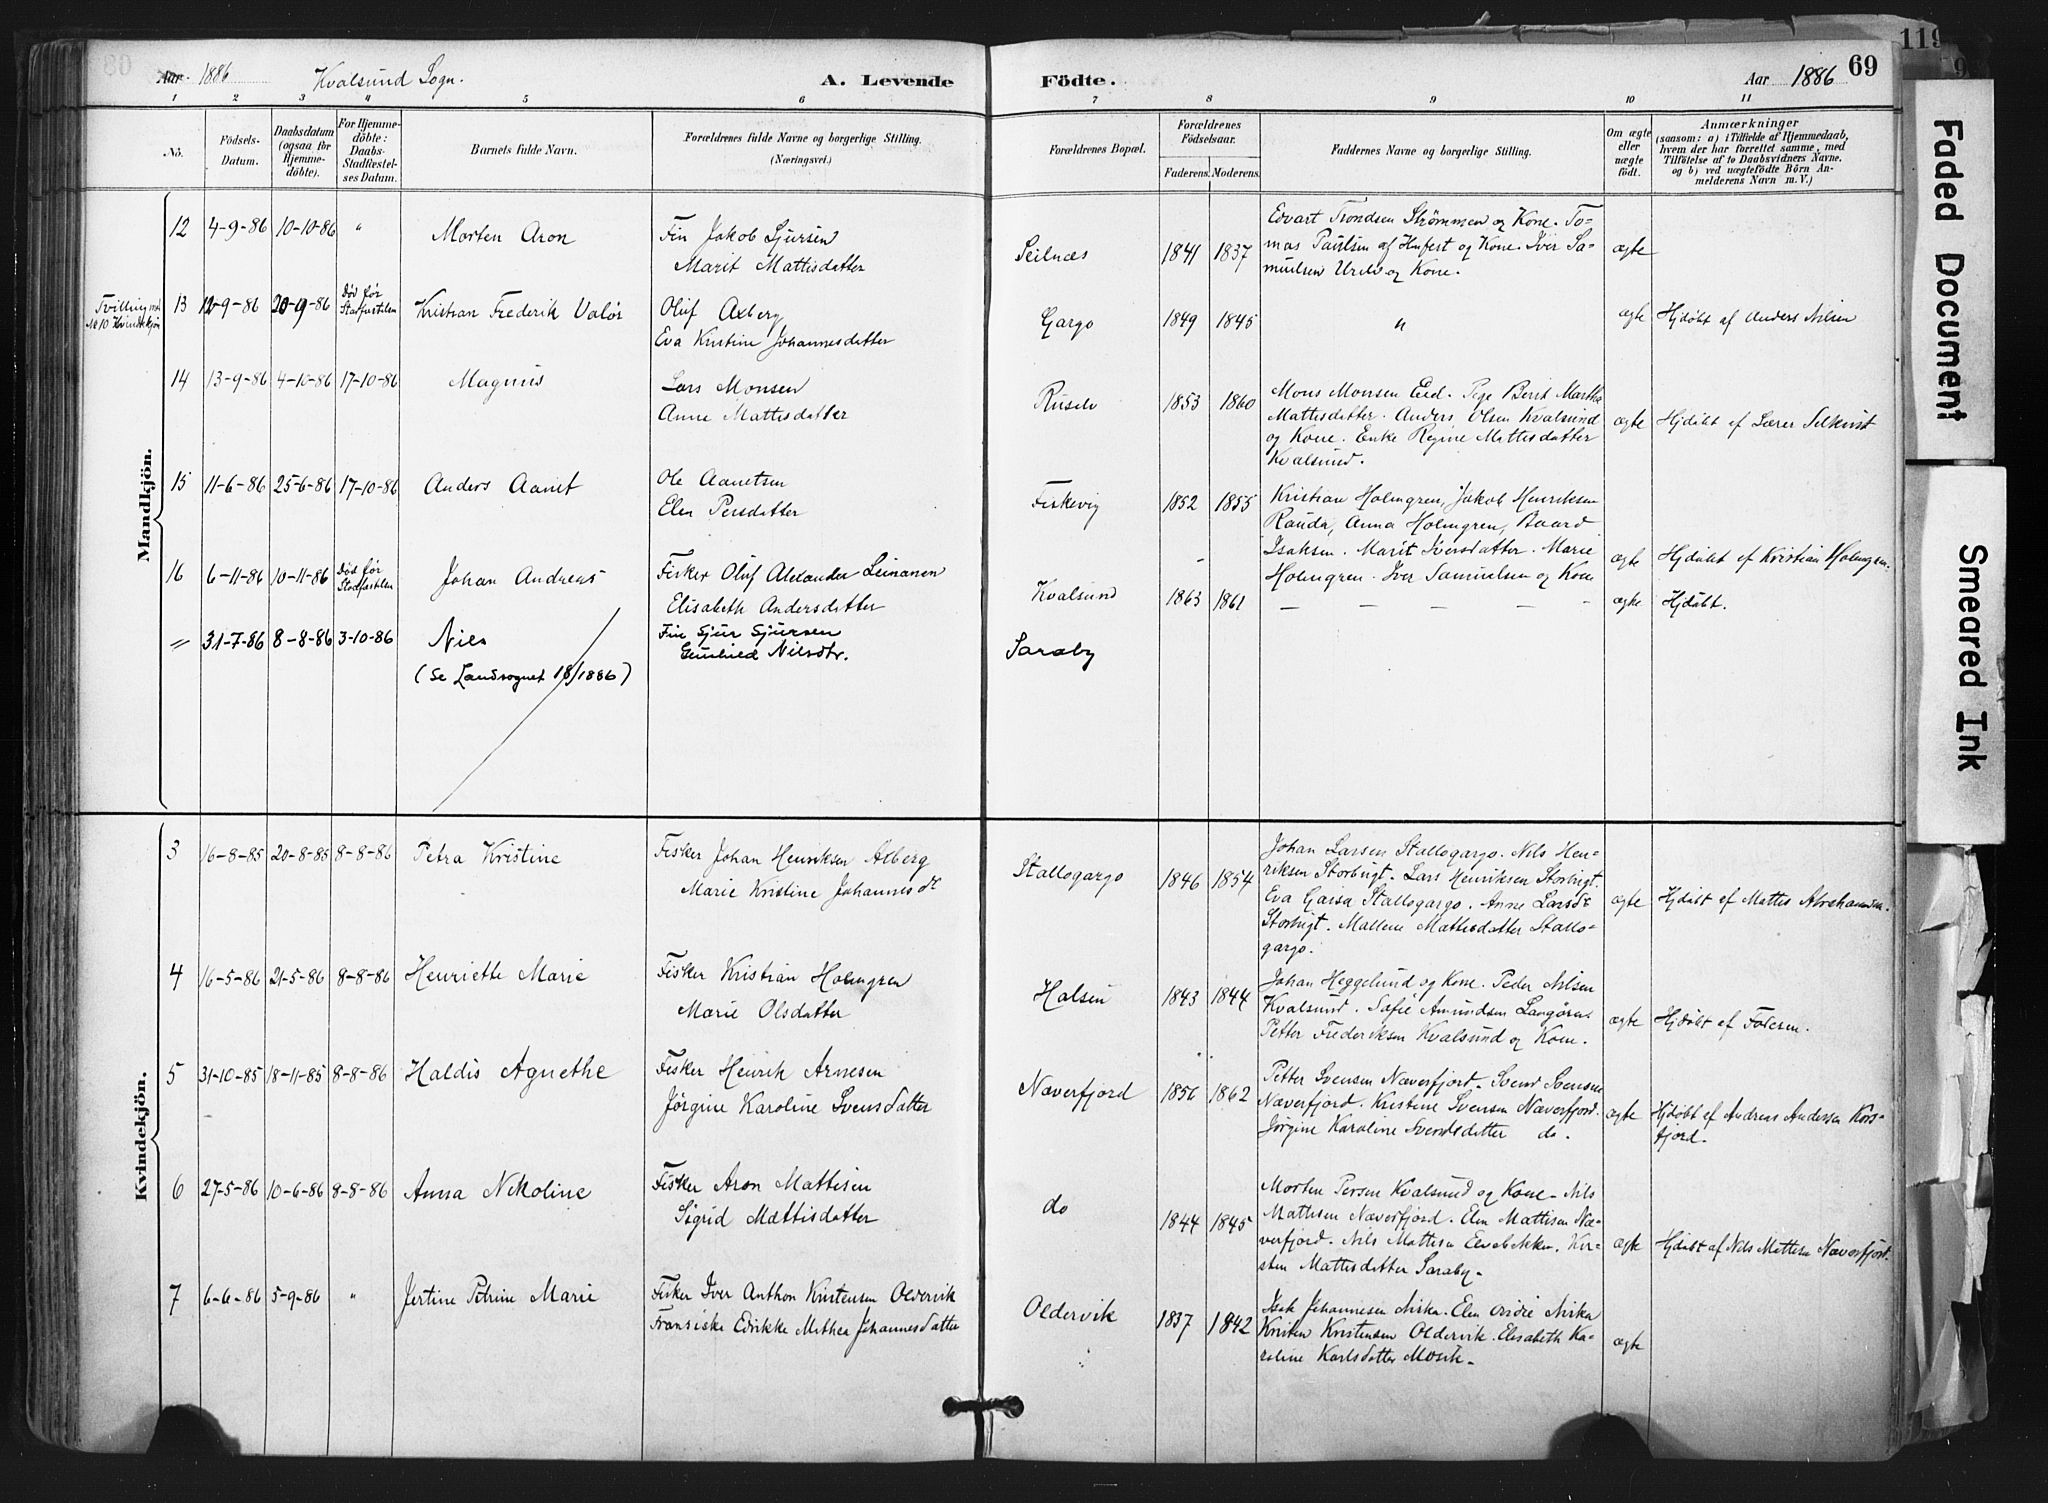 Aar 1886 Kvalsund Sogn. A. Levende Födte. Aar 1886 69
119
1 2 3 4 5 6 7 8 9 10 11
No.
Födsels-Datum.
Daabsdatum (ogsaa for Hjemmedöbte).
For Hjemmedöbte: Daabs-Stadfæstelses Datum.
Barnets fulde Navn.
Forældrenes fulde Navne og borgerlige Stilling.
(Næringsvei.)
Forældrenes Bopæl.
Forældrenes Födselsaar.
Faderens. Moderens.
Faddernes Navne og borgerlige Stilling.
Om ægte eller uægte födt.
Anmærkninger
(saasom: a) i Tilfælde af Hjemmedaab,
hvem der har forrettet samme, med
Tilföielse af to Daabsvidners Navne.
og b) ved uægtefödte Börn Anmelderens Navn m. V.)
Mandkjön.
12 4-9-86 10-10-86 " Morten Aron
Fin Jakob Sjursen
Marit Mattisdatter
Seilnæs 1841 1837
Edvart Trondsen Strømmen og Kone. To-
mas Paulsen af Hmfest og Kone. Iver Sa-
muelsen og Kone.
ægte
Tvilling
No 10 Kvindekjøn
13 12-9-86 20-9-86 Død før Stadfæstelsen Kristian Frederik Valør
Oluf Axberg
Eva Kristine Johannesdatter
Gargo 1849 1845 " ægte Hjdøbt af Anders Nilsen
14 13-9-86 4-10-86 17-10-86 Magnus
Lars Monsen
Anne Mattisdatter
Ruselv 1853 1860
Mons Monsen Eid. Pige Berit Martha
Mattisdatter. Anders Olsen Kvalsund
og Kone. Enke Regine Mattisdatter
Kvalsund.
ægte Hjdøbt af Lærer
15 11-6-86 25-6-86 17-10-86 Anders Aanet
Ole Aanetsen
Elen Persdatter
Fiskevig 1852 1855
Kristian Holmgren, Jakob Henriksen
Rauda, Anna Holmgren, Baard
Isaksen. Marit Iversdatter. Marie
Holmgren. Iver Samuelsen og Kone
ægte Hjdøbt af Kristian Holmgren.
16 6-11-86 10-11-86 Død før Stadfæstelsen Johan Andreas
Fisker Oluf Alexander Leinanen
Elisabeth Andersdatter
Kvalsund 1863 1861 - - - - - ægte Hjdøbt.
" 31-7-86 8-8-86 3-10-86 Nils
(Se Landsognet 18/1886)
Fin Sjur Sjursen
Gunhild Nilsdtr.
Saraby
Kvindekjön.
3 16-8-85 20-8-85 8-8-86 Petra Kristine
Fisker Johan Henriksen Alberg
Marie Kristine Johannesdr
Stallogargo 1846 1854
Johan Larsen Stallogargo. Nils Hen-
riksen Storbugt. Lars Henriksen Storbugt.
Eva Gaisa Stallogargo. Anne Larsdr
Storbugt. Mallene Mattisdatter Stallo-
gargo.
ægte Hjdøbt af Mattis Abrahamsen.
4 16-5-86 21-5-86 8-8-86 Henriette Marie
Fisker Kristian Holmgren
Marie Olsdatter
Halsen 1843 1844
Johan Heggelund og Kone. Peder Nilsen
Kvalsund. Sofie Amundsen Langøren.
Petter Frederiksen Kvalsund og Kone.
ægte Hjdøbt af Faderen.
5 31-10-85 18-11-85 8-8-86 Haldis Agnethe
Fisker Henrik Arnesen
Jørgine Karoline Svensdatter
Næverfjord 1856 1862
Petter Svensen Næverfjord. Svend Svensen
Næverfjord. Kristine Svensen Næverfjord.
Jørgine Karoline Svendsdatter do.
ægte Hjdøbt af Andreas Andersen Kors-
fjord.
6 27-5-86 10-6-86 8-8-86 Anna Nikoline
Fisker Aron Mattisen
Sigrid Mattisdatter
do 1844 1845
Morten Persen Kvalsund og Kone. Nils
Mathisen Næverfjord. Elen Mattisen Næ-
verfjord. Nils Mattisen Elvebakken. Kir-
sten Mattisdatter Saraby.
ægte Hjdøbt af Nils Mattisen Næverfjord.
7 6-6-86 5-9-86 " Jertine Petrine Marie
Fisker Iver Anthon Kristensen Oldervik
Fransiske Edrikke Mathea Johannesdatter
Oldervik 1837 1842
Isak Johannesen Mika. Elen Mika
Kristen Kristensen Oldervik. Elisabeth Ka-
roline Karlsdatter
ægte
Faded Document
Smeared Ink